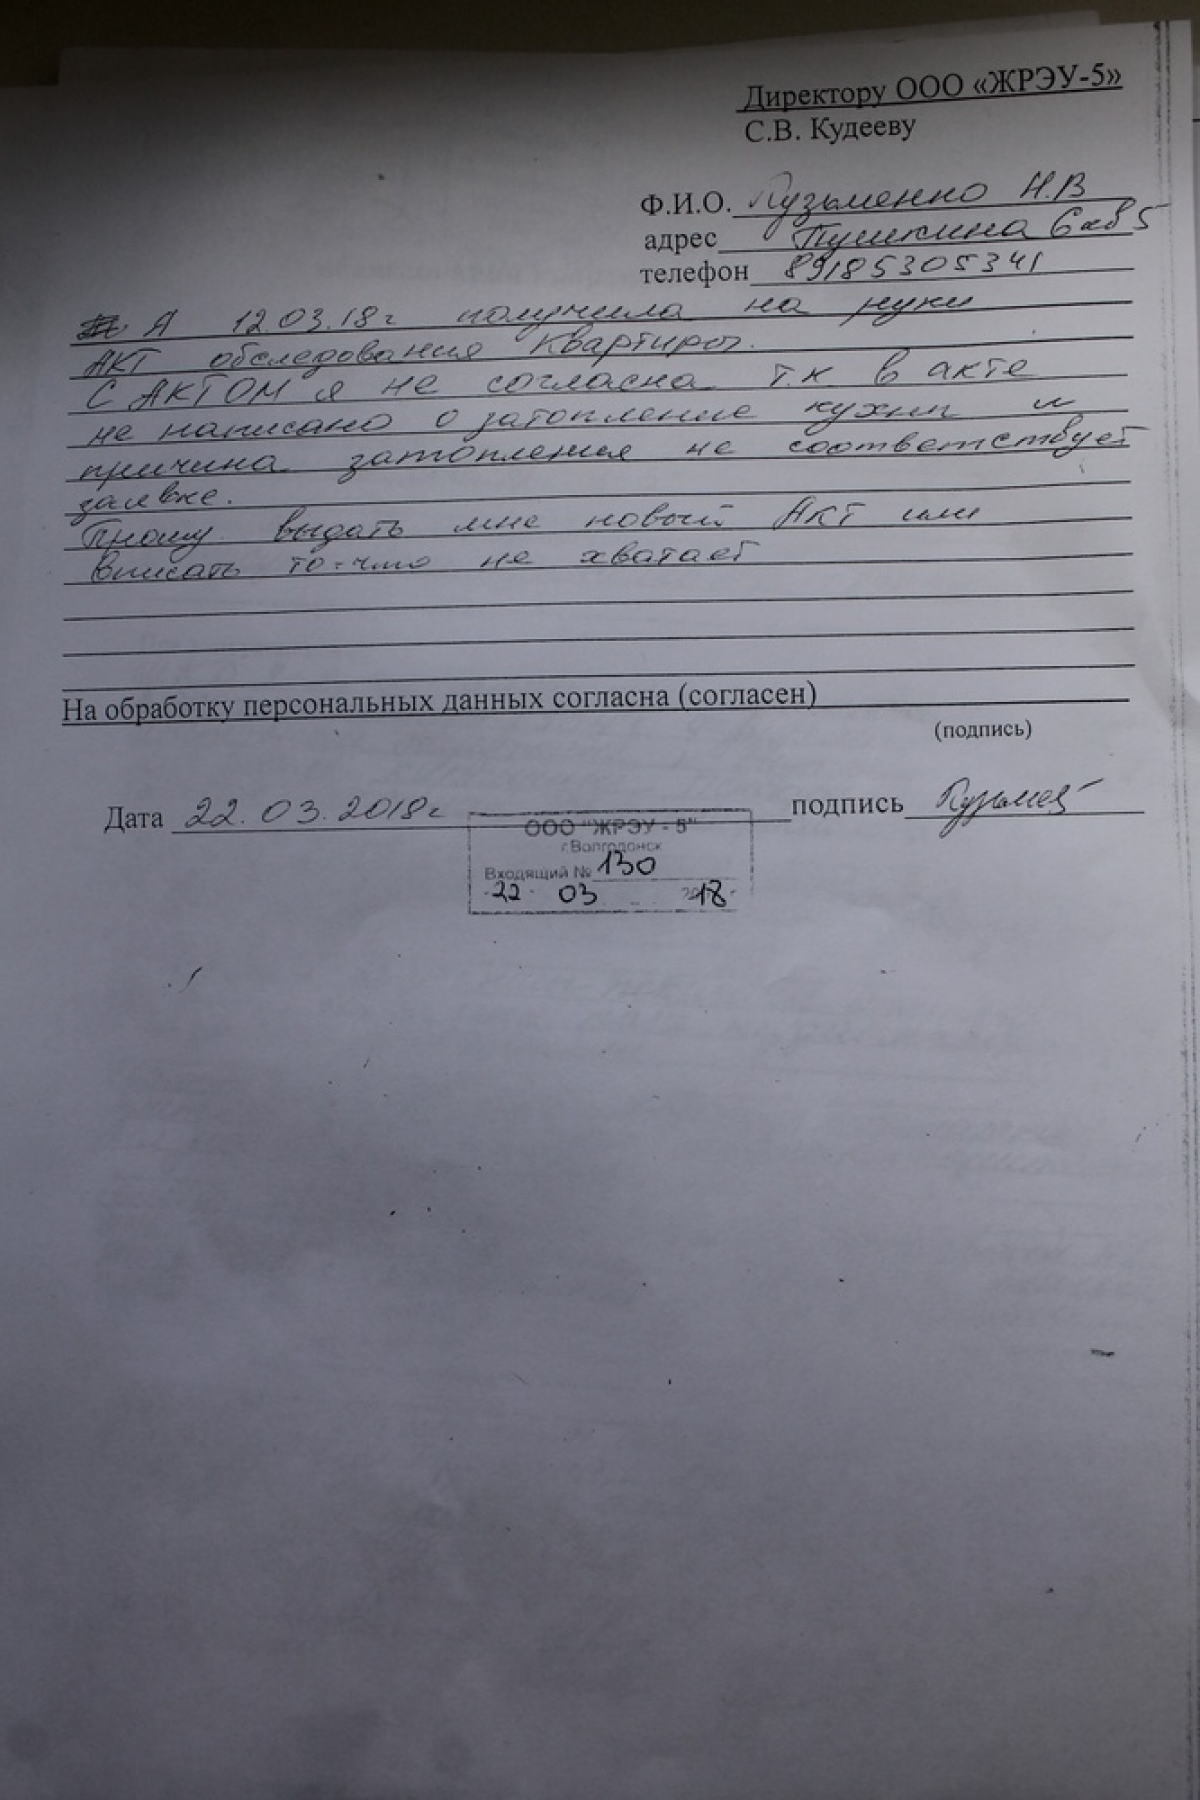 Директору ООО «ЖРЭУ-5»
С.В. Кудееву
Ф.И.О. Кузьменко Н.В
адрес Пушкина 6 кв 5
телефон 89185305341
Я 12.03.18г получила на руки
АКТ обследования квартиры.
С АКТОМ я не согласна т.к в акте
не написано о затопление кухни и
причина затопления не соответствует
заявке.
Прошу выдать мне новый Акт или
вписать то-что не хватает
На обработку персональных данных согласна (согласен)
(подпись)
Дата 22.03.2018г подпись
ООО "ЖРЭУ - 5"
г.Волгодонск
Входящий № 130
22 03 2018